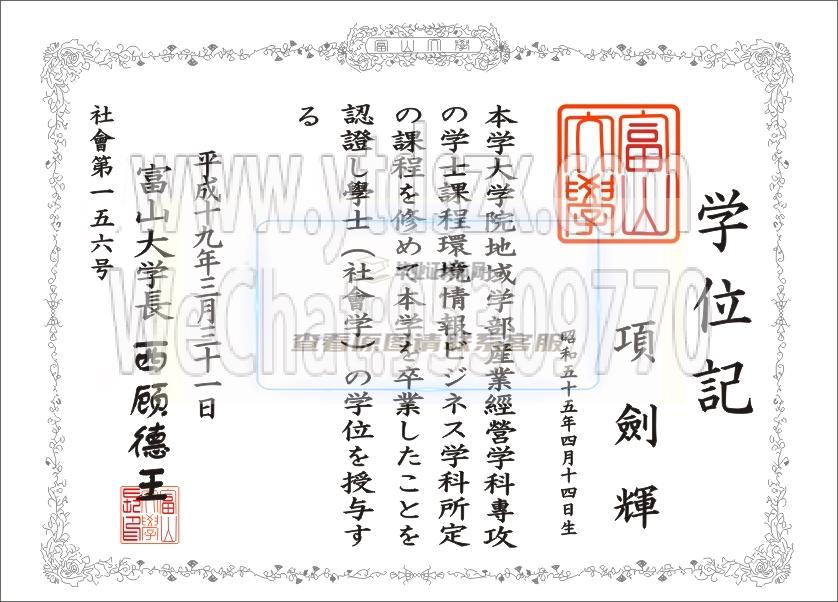 富山大學
学位記
富山大學
項劍輝
昭和五十五年四月十四日生
本学大学院地域学部産業經營学科專攻
の学士課程環境情報ビジネス学科所定
の課程を修めて本学を卒業したことを
認證し學士（社會学）の学位を授与す
る
平成十九年三月二十一日
富山大学長 西顾德王
社會第一五六号
www.ytdszx.com
查看原图请联系客服